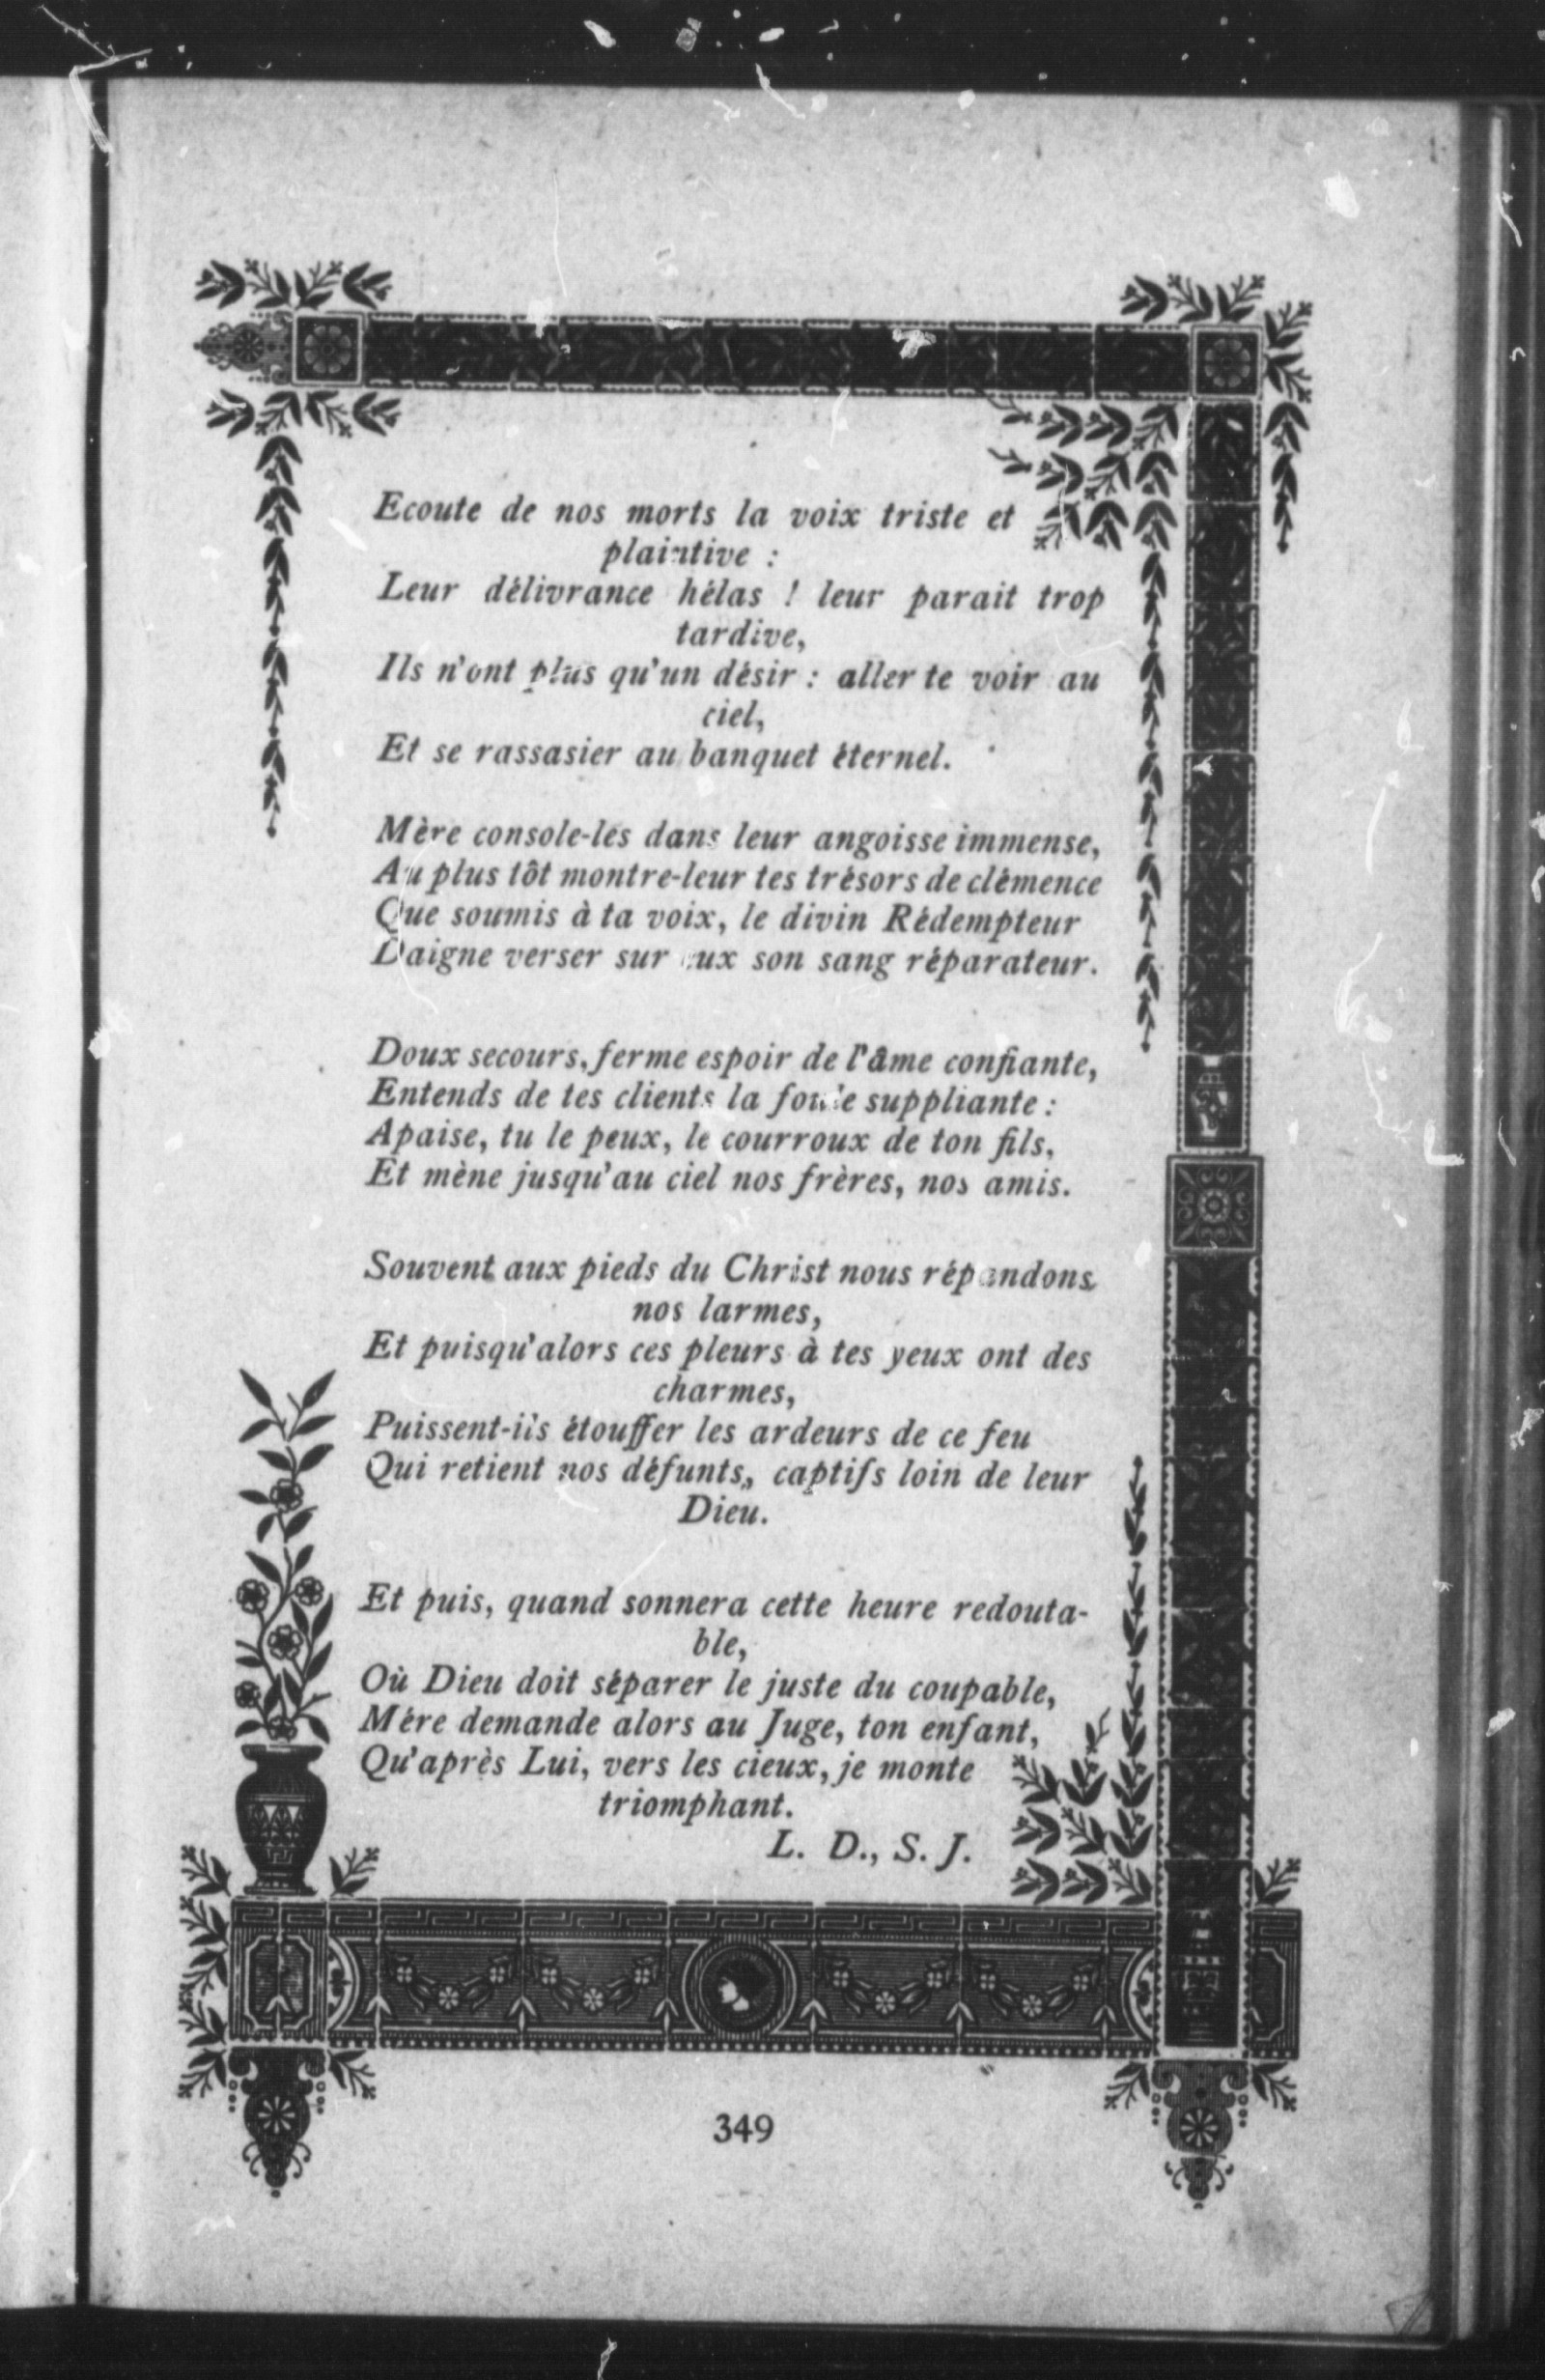 Ecoute de nos morts la voix triste et
plaintive :
Leur délivrance hélas ! leur parait trop
tardive,
Ils n'ont plus qu'un désir : aller te voir au
ciel,
Et se rassasier au banquet éternel.
Mère console-les dans leur angoisse immense,
Au plus tôt montre-leur tes trésors de clémence
Que soumis à ta voix, le divin Rédempteur
Daigne verser sur eux son sang réparateur.
Doux secours, ferme espoir de l'âme confiante,
Entends de tes clients la foule suppliante :
Apaise, tu le peux, le courroux de ton fils,
Et mène jusqu'au ciel nos frères, nos amis.
Souvent aux pieds du Christ nous répandons
nos larmes,
Et puisqu'alors ces pleurs à tes yeux ont des
charmes,
Puissent-ils étouffer les ardeurs de ce feu
Qui retient nos défunts, captifs loin de leur
Dieu.
Et puis, quand sonnera cette heure redouta-
ble,
Où Dieu doit séparer le juste du coupable,
Mére demande alors au Juge, ton enfant,
Qu'après Lui, vers les cieux, je monte
triomphant.
L. D., S. J.
349